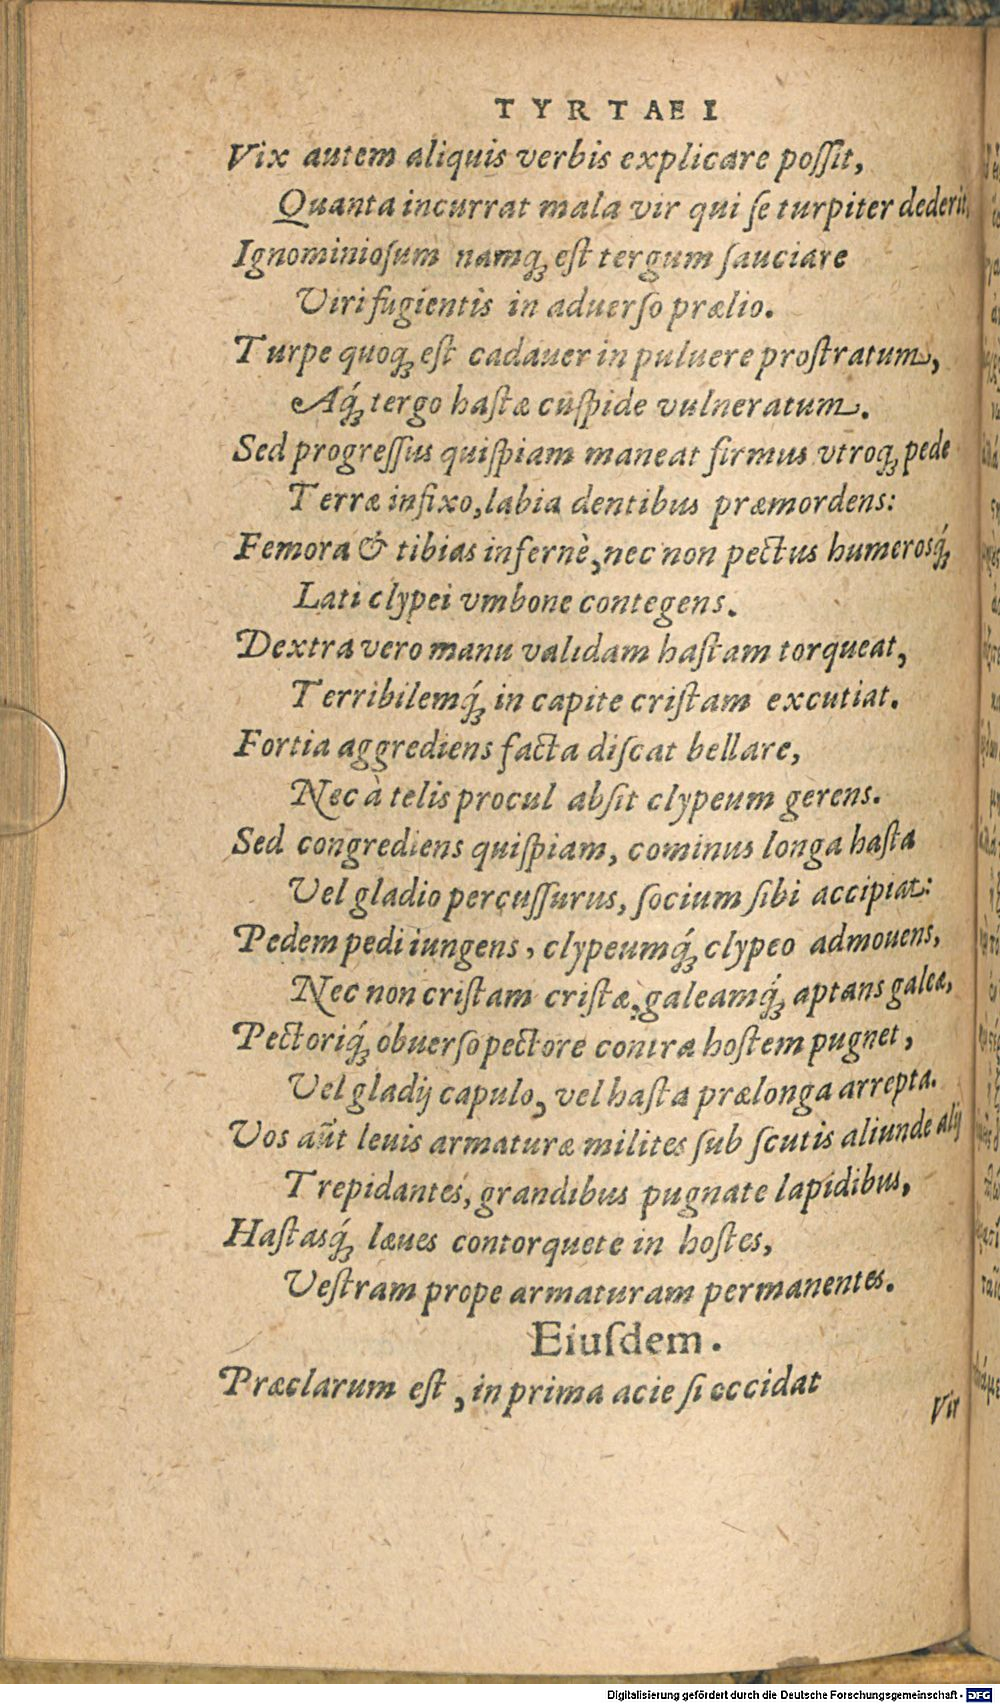 TYRTAEI
Vix autem aliquis verbis explicare poſſit,
Quanta incurrat mala vir qui ſe turpiter dederit,
Ignominioſum namq́; eſt tergum ſauciare
Viri fugientis in aduerſo prælio.
Turpe quoq; eſt cadauer in puluere proſtratum,
Aq́; tergo haſtæ cuſpide vulneratum.
Sed progreſſus quiſpiam maneat firmus vtroq; pede
Terræ infixo, labia dentibus præmordens:
Femora & tibias infernè, nec non pectus humerosq́;
Lati clypei vmbone contegens.
Dextra vero manu validam haſtam torqueat,
Terribilemq́; in capite criſtam excutiat.
Fortia aggrediens facta diſcat bellare,
Nec à telis procul abſit clypeum gerens.
Sed congrediens quiſpiam, cominus longa haſta
Vel gladio percuſſurus, ſocium ſibi accipiat:
Pedem pedi iungens, clypeumq́; clypeo admouens,
Nec non criſtam criſtæ, galeamq́; aptans galeæ,
Pectoriq́; obuerſo pectore contra hoſtem pugnet,
Vel gladij capulo, vel haſta prælonga arrepta.
Vos aūt leuis armaturæ milites ſub ſcutis aliunde alij
Trepidantes, grandibus pugnate lapidibus,
Haſtasq́; læues contorquete in hoſtes,
Veſtram prope armaturam permanentes.
Eiuſdem.
Præclarum eſt, in prima acie ſi occidat
Vir
Digitalisierung gefördert durch die Deutsche Forschungsgemeinschaft - DFG